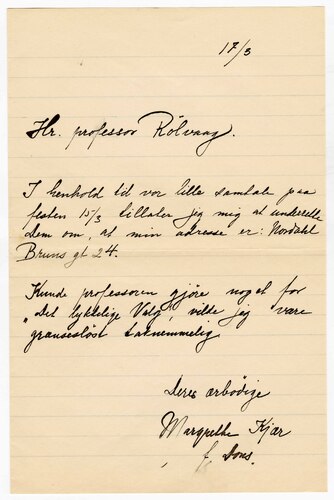 17/3
Hr. professor Rölvaag.
I henhold til vor lille samtale paa
festen 15/3 tillater jeg mig at underrette
Dem om, at min adresse er: Nordahl
Bruns gt 24.
Kunde professoren gjøre noget for
"Det lykkelige Valg", vilde jeg være
grænseløst taknemmelig
Deres ærbödige
Margrethe Kjær
f. Dons.